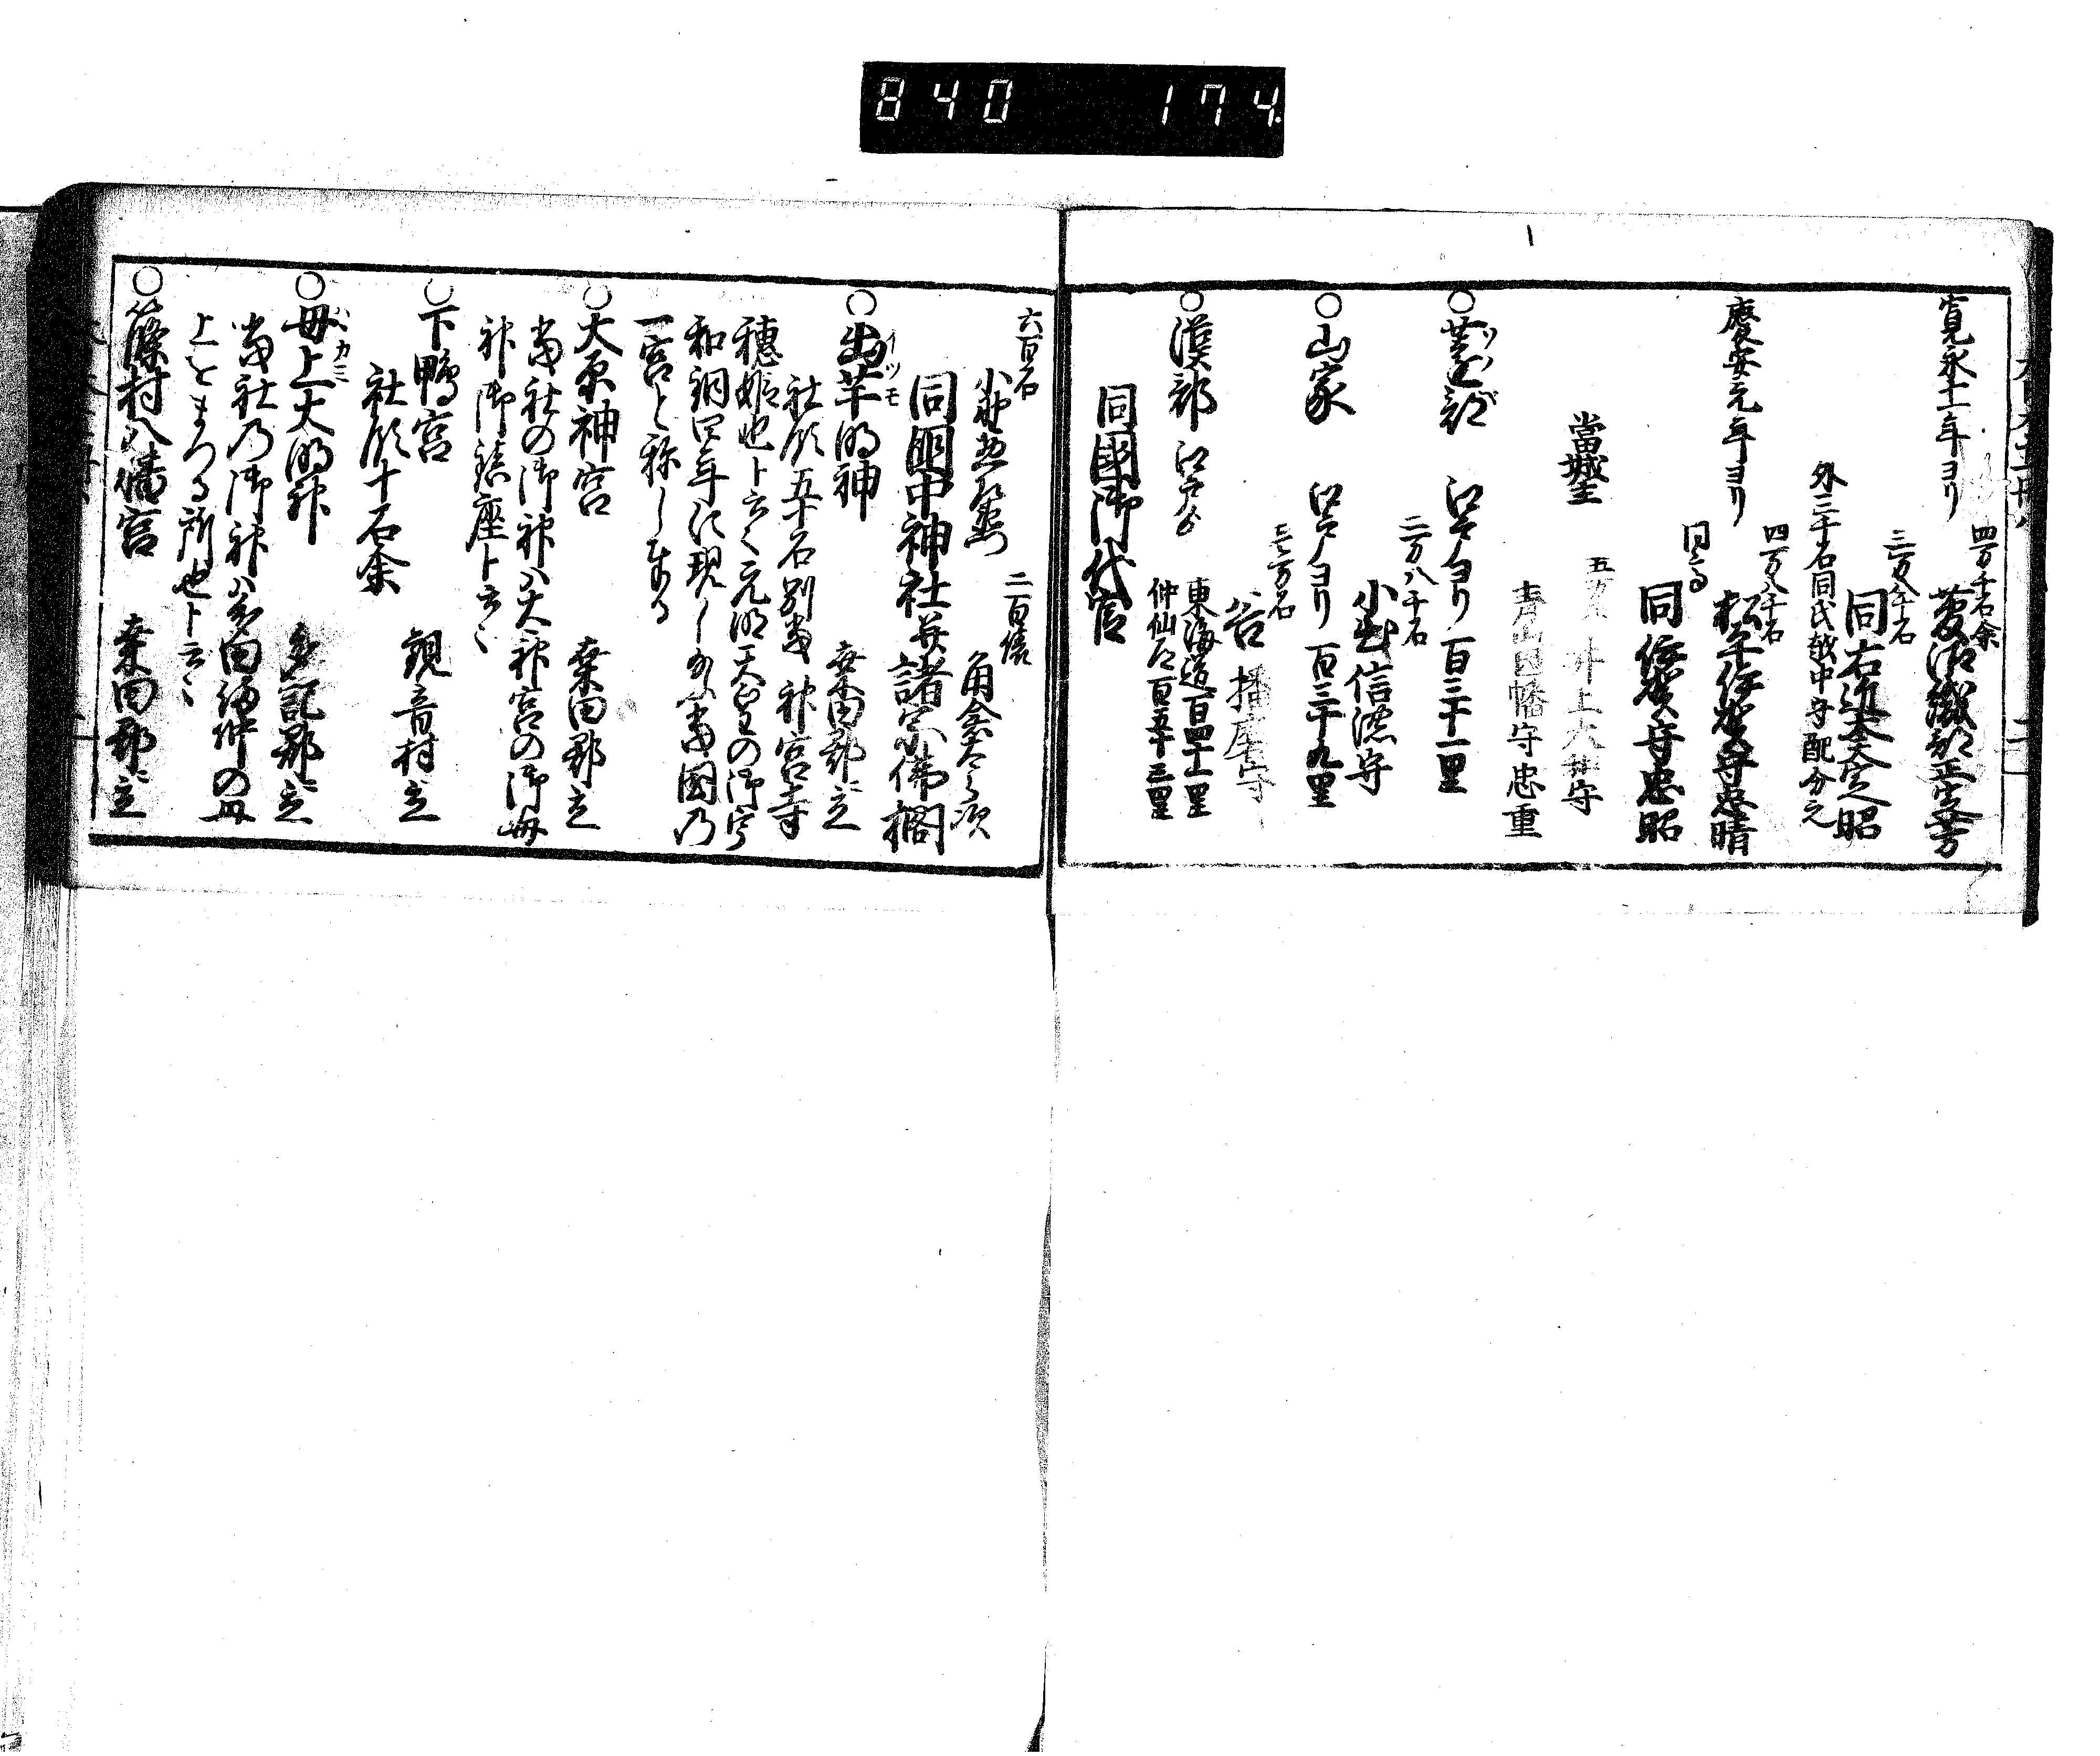 840 174
寛永十一年ヨリ
四万千石余
菅沼織部正定芳
三万八千石
同右近太夫定昭
外三千石同氏越中守配分之
慶安元年ヨリ
四万八千石
松平伊賀守忠晴
同高
同伊賀守忠昭
當城主
五万石
井上大和守
青山因幡守忠重
○薗部 江戸ヨリ百三十一里
二万八千石
小出信濃守
○山家 江戸ヨリ百三十九里
谷播磨守
○漢部 江戸ヨリ
東海道百四十一里
仲仙道百五十三里
同國御代官
六百石
小野惣左衛門
二百俵
角倉
同國中神社并諸宗佛閣
○出芋明神 桒田郡ニ立
イツモ
社領五十石別當神宮寺
穂姫也ト云々元明天皇の御宇
和銅四年に現し給ふ當國乃
一宮と称し奉る
○大原神宮 桒田郡立
當社の御神ハ大神宮の御母
神御鎮座ト云々
○下鴨宮 観音村立
社領十石余
○母上大明神 多記郡ニ立
ハカミ
當社乃御神ハ
上をまつる所也ト云々
○篠村八幡宮 桒田郡ニ立